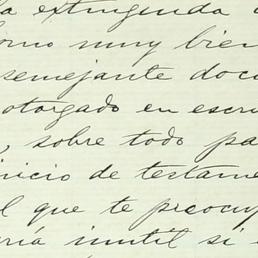 la extinguida
como muy bien
semejante doc
otorgado en escri
, sobre todo pa
inicio de testame
l que te preocup
ería inutil si